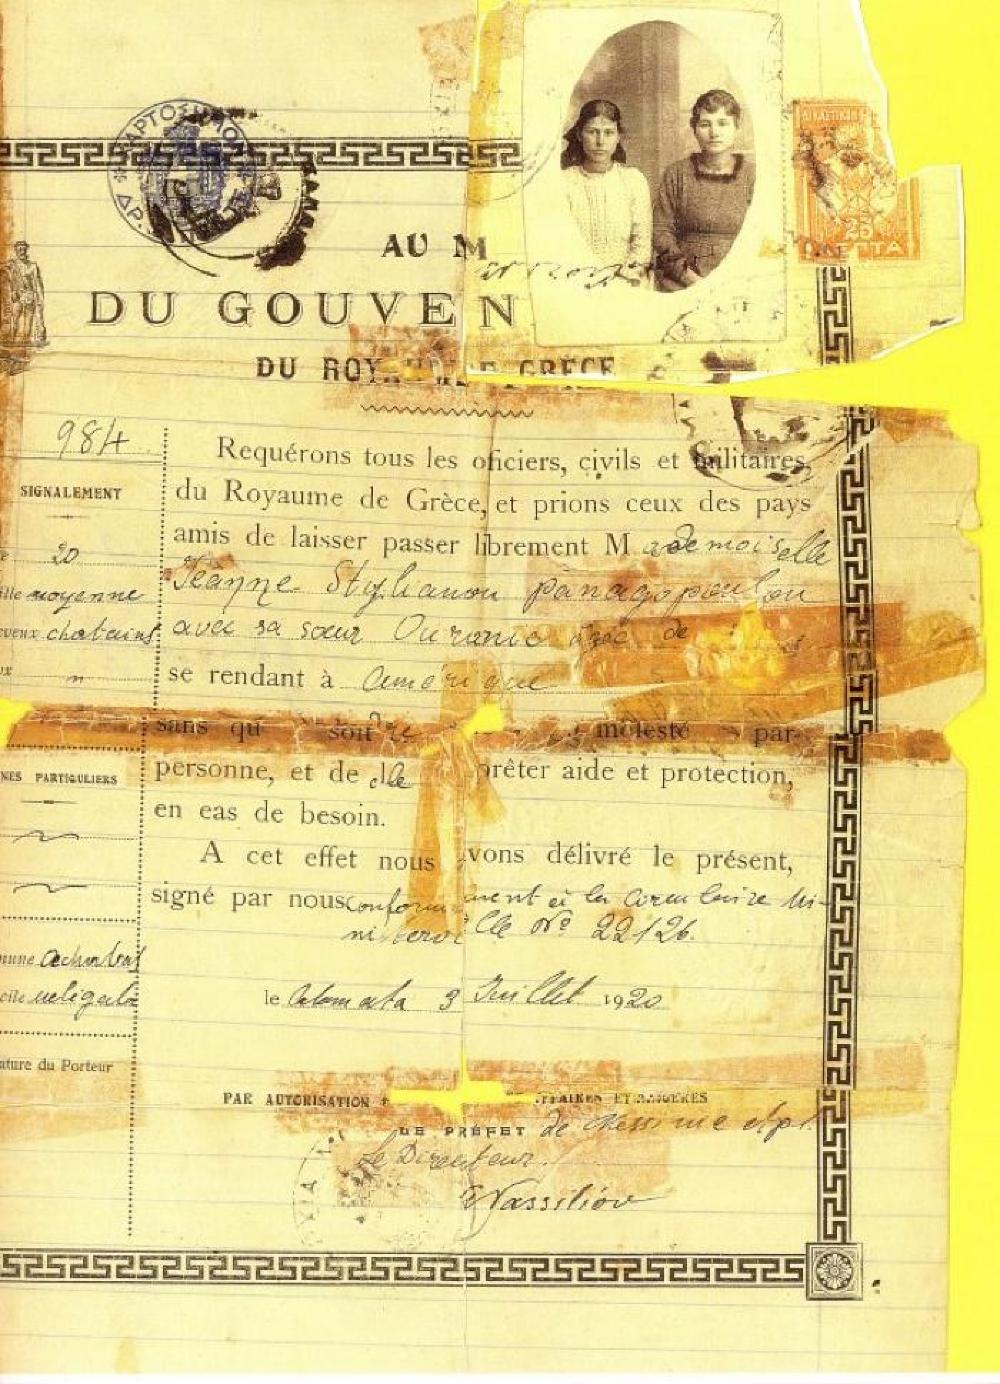 ΧΑΡΤΟΣΗΜΟΝ
ΔΡ.
ΔΙΚΑΣΤΙΚΟΝ
25
ΛΕΠΤΑ
AU
DU GOUVE
DU ROY GRÈCE
984
SIGNALEMENT
20
moyenne
chatains
"
NES PARTICULIERS
achntas
meligala
ature du Porteur
Requérons tous les oficiers, civils et militaires,
du Royaume de Grèce, et prions ceux des pays
amis de laisser passer librement Mademoiselle
Jeanne Stylianou Panagopoulou
avec sa sœur Ouranie âgée de
se rendant à Amérique
sans qu soit molesté par
personne, et de prêter aide et protection,
en eas de besoin.
A cet effet nous avons délivré le présent,
signé par nous conformément à la circulaire Mi-
nistérielle No 22126.
le Calamata 3 Juillet 1920
PAR AUTORISATION AFFAIRES ETRANGÈRES
LE PRÉFET de Messinie
Le Directeur
Wassiliou